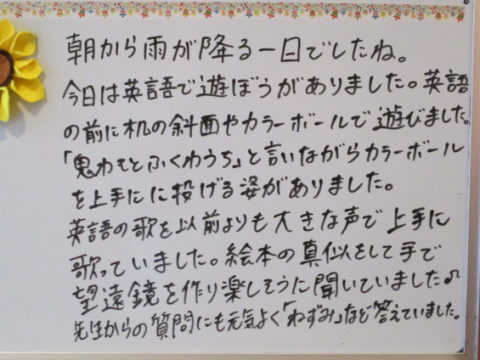 朝から雨が降る一日でしたね。
今日は英語で遊ぼうがありました。英語
の前に机の斜面やカラーボールで遊びました。
「鬼わそとふくわうち」と言いながらカラーボール
を上手にに投げる姿がありました。
英語の歌を以前よりも大きな声で上手に
歌っていました。絵本の真似をして手で
望遠鏡を作り楽しそうに聞いていました♫
先生からの質問にも元気よく「ねずみ」など答えていました。